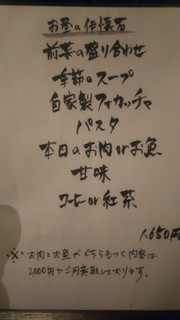 お昼の伊懐石
前菜の盛り合わせ
季節のスープ
自家製フォカッチャ
パスタ
本日のお肉orお魚
甘味
コーヒーor紅茶
1,650円
※お肉とお魚がどちらもつく内容は
2,000円でご用意致しております。